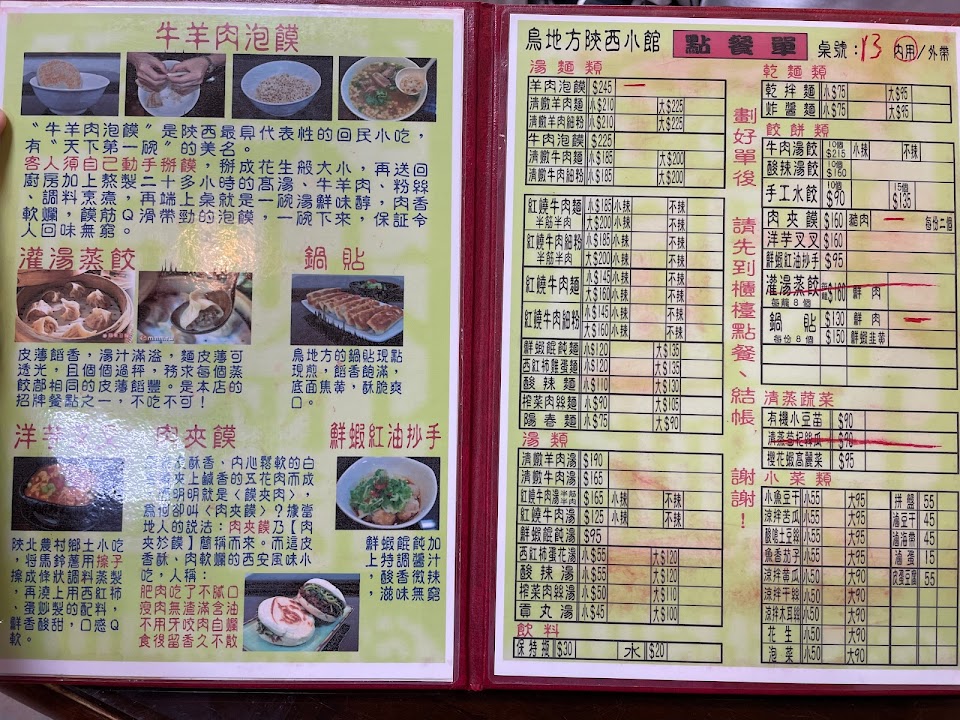 牛羊肉泡饃
〝牛羊肉泡饃〞是陝西最具代表性的回民小吃，
有〝天下第一碗〞的美名。
客人須自己動手掰饃，掰成花生般大小，再送回
廚房加上熬製二十多小時的高湯、牛羊肉、粉絲
、調料烹煮，再端上桌就是一碗湯鮮味醇，肉香
軟嫻，饃筋Q滑帶勁的泡饃，一碗下來，保証令
人回味無窮。
灌湯蒸餃
鍋貼
皮薄餡香，湯汁滿溢，麵皮薄可
透光，且個個過秤，務求每個蒸
餃都相同的皮薄餡豐。是本店的
招牌餐點之一，不吃不可！
烏地方的鍋貼現點
現煎，餡香飽滿，
底面焦黃，酥脆爽
口。
肉夾饃
鮮蝦紅油抄手
陝北農村鄉土小吃
，將馬鈴薯用擦子
擦成條狀調料蒸製
，再澆上用西紅柿
、蛋炒製的配料，
鮮香酸甜，口感Q
軟。
酥香、內心鬆軟的白
夾上鹹香的五花肉而成
明明就是〈饃夾肉〉，
為何卻叫〈肉夾饃〉？據當
地人的說法：肉夾饃乃【肉
夾於饃】簡稱而來。而這皮
香酥、肉軟嫻的西安風味小
吃，人稱：
肥肉吃了不膩口
瘦肉無渣滿含油
不用牙咬肉自爛
食後留香久不散
鮮蝦餛飩加
上特調醬汁
，酸香微辣
，滋味無窮
烏地方陝西小館 點餐單 桌號：13 內用/外帶
湯麵類
羊肉泡饃 $245
清燉羊肉麵 小$210 大$225
清燉羊肉細粉 小$210 大$225
牛肉泡饃 $225
清燉牛肉麵 小$185 大$200
清燉牛肉細粉 小$185 大$200
紅燒牛肉麵 小$185 小辣 不辣
半筋半肉 大$200 小辣 不辣
紅燒牛肉細粉 小$185 小辣 不辣
半筋半肉 大$200 小辣 不辣
紅燒牛肉麵 小$145 小辣 不辣
大$160 小辣 不辣
紅燒牛肉細粉 小$145 小辣 不辣
大$160 小辣 不辣
鮮蝦餛飩麵 小$120 大$135
西紅柿雞蛋麵 小$120 大$135
酸辣麵 小$110 大$130
榨菜肉絲麵 小$90 大$105
陽春麵 小$75 大$90
湯類
清燉羊肉湯 $190
清燉牛肉湯 $165
紅燒牛肉湯 半筋半肉 $165 小辣 不辣
紅燒牛肉湯 $125 小辣 不辣
鮮蝦餛飩湯 $95
西紅柿蛋花湯 小$55 大$120
酸辣湯 小$55 大$120
榨菜肉絲湯 小$50 大$110
貢丸湯 小$45 大$100
飲料
保特瓶 $30 水 $20
劃好單後 請先到櫃檯點餐、結帳 謝謝！
乾麵類
乾拌麵 小$75 大$95
炸醬麵 小$75 大$95
餃餅類
牛肉湯餃 10個 $215 小辣 不辣
酸辣湯餃 10個 $160
手工水餃 10個 $90 15個 $135
肉夾饃 $160 豬肉 每份二個
洋芋叉叉 $160
鮮蝦紅油抄手 $95
灌湯蒸餃 $160 鮮肉
每籠8個
鍋貼 $130 鮮肉
每份8個 $150 鮮蝦韭黃
清蒸蔬菜
有機小豆苗 $90
$90
櫻花蝦高麗菜 $95
小菜類
小魚豆干 小55 大95 拼盤 55
涼拌苦瓜 小55 大95 滷豆干 45
酸嗆土豆絲 小55 大95 滷海帶 45
魚香茄子 小55 大95 滷蛋 15
涼拌黃瓜 小50 大90 皮蛋豆腐 55
涼拌三絲 小50 大90
涼拌木耳絲 小50 大90
花生 小50 大90
泡菜 小50 大90